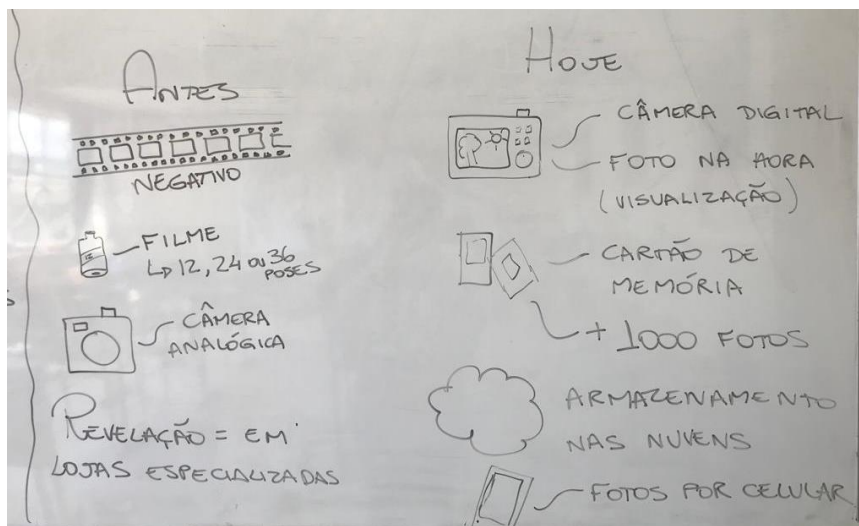 ANTES
NEGATIVO
FILME
↳ 12, 24 ou 36
POSES
CÂMERA
ANALÓGICA
REVELAÇÃO = EM
LOJAS ESPECIALIZADAS
HOJE
CÂMERA DIGITAL
FOTO NA HORA
(VISUALIZAÇÃO)
CARTÃO DE
MEMÓRIA
+ 1000 FOTOS
ARMAZENAMENTO
NAS NUVENS
FOTOS POR CELULAR